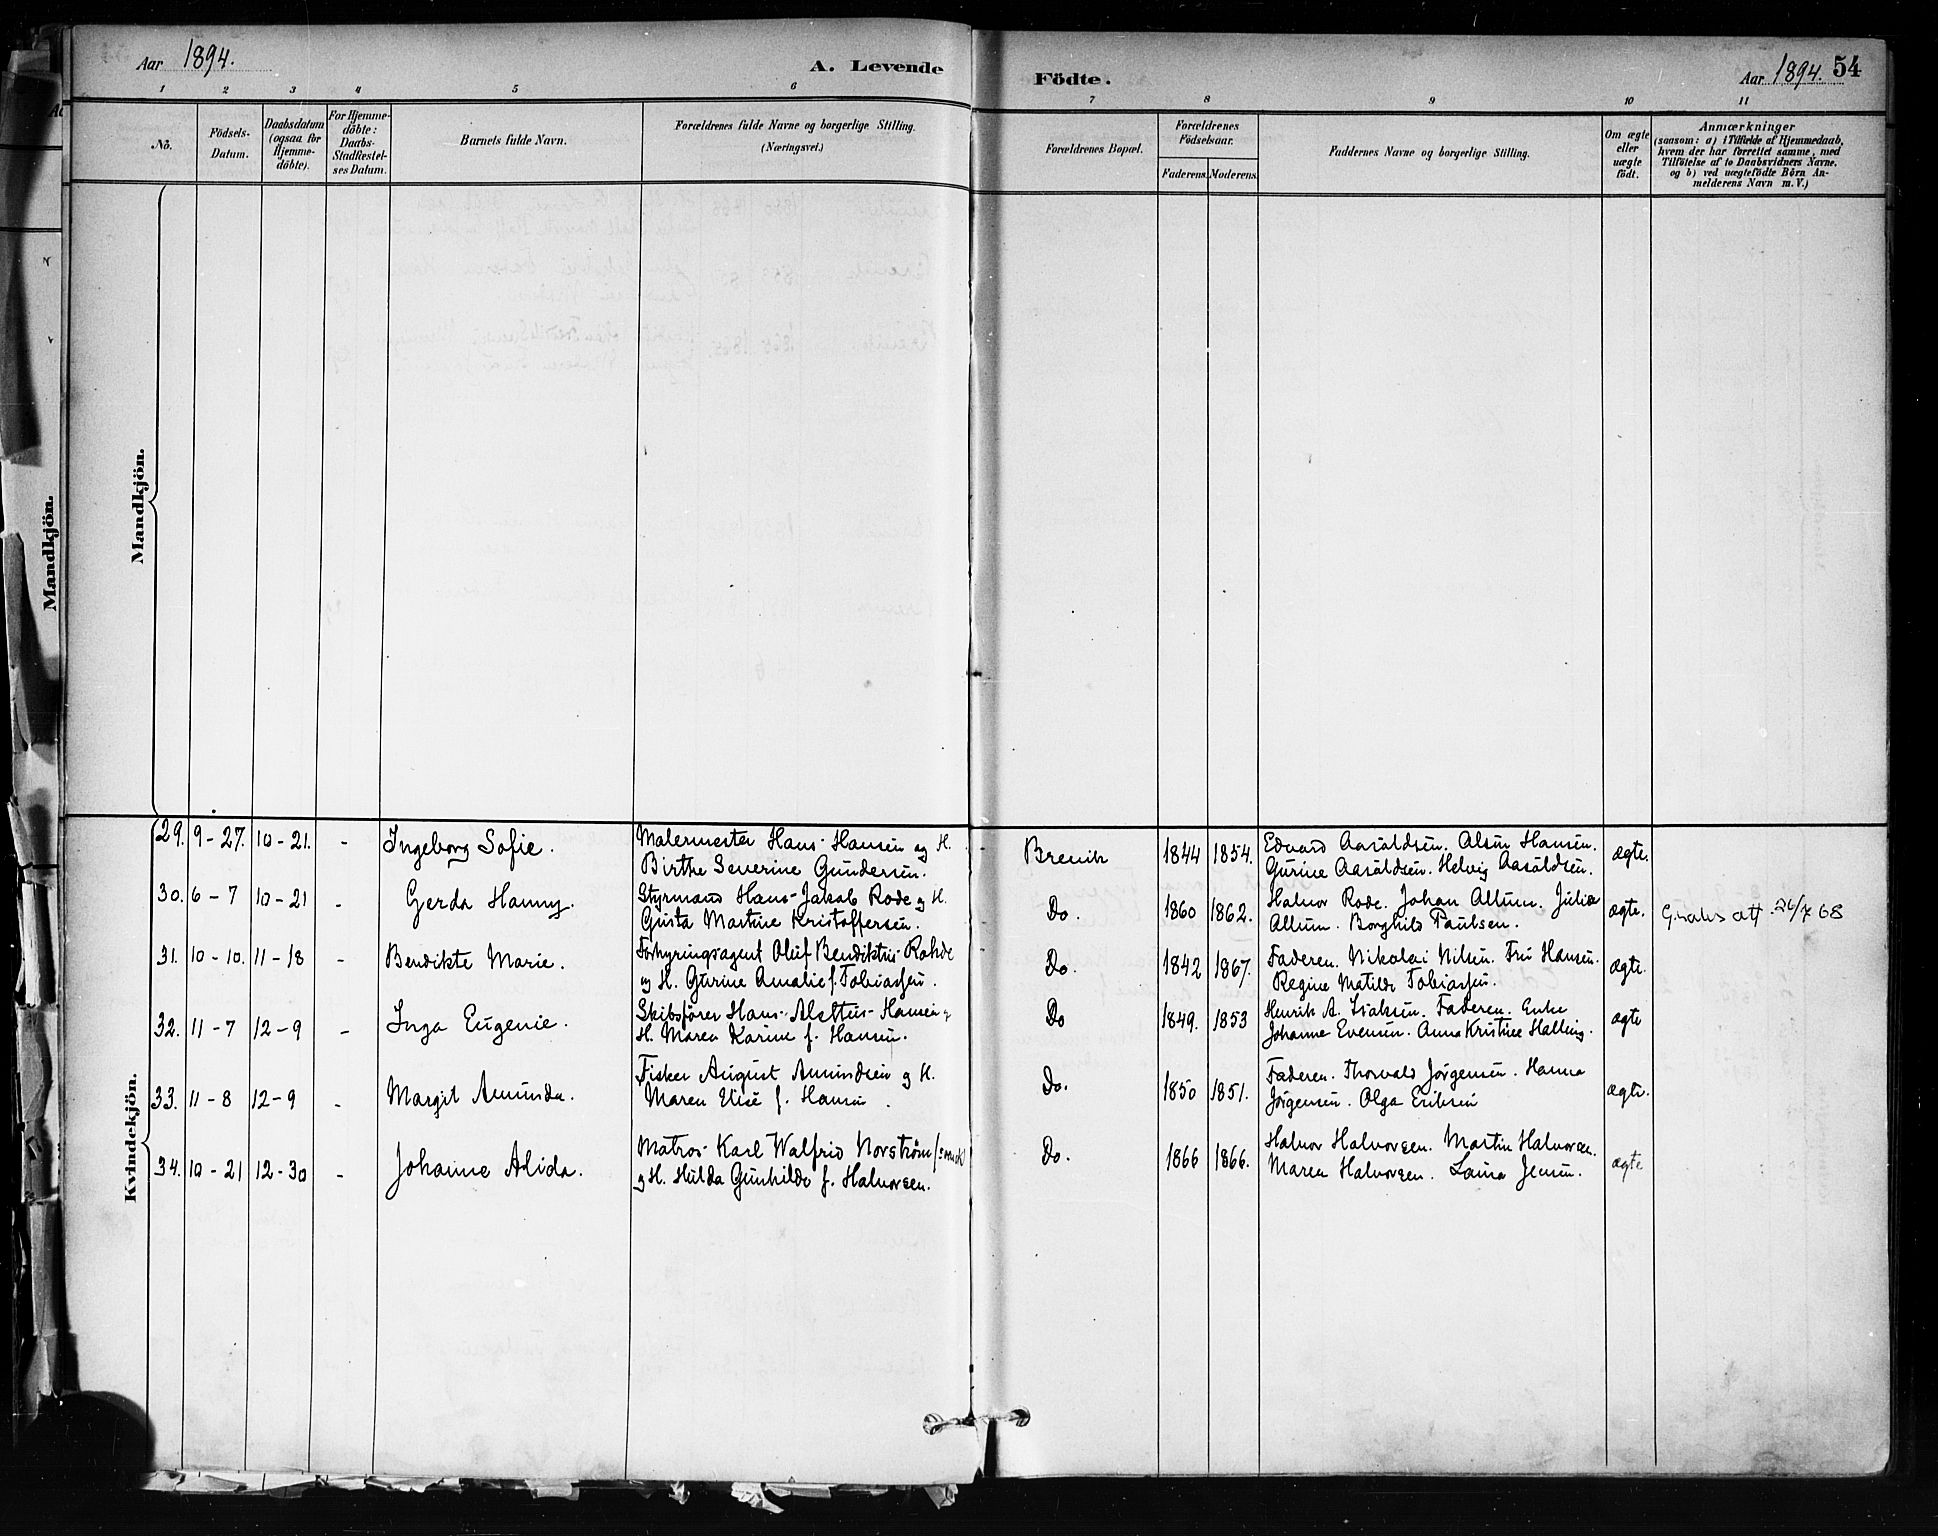 Aar 1894.
A. Levende
Födte.
Aar 1894. 54
1 2 3 4 5 6 7 8 9 10 11
No.
Födsels-
Datum.
Daabsdatum
(ogsaa for
Hjemme-
döbte).
For Hjemme-
döbte:
Daabs-
Stadfæstel-
ses Datum.
Barnets fulde Navn.
Forældrenes fulde Navne og borgerlige Stilling.
(Næringsvei.)
Forældrenes Bopæl.
Forældrenes
Födselsaar.
Faderens. Moderens.
Faddernes Navne og borgerlige Stilling.
Om ægte
eller
uægte
födt.
Anmærkninger
(saasom: a) i Tilfælde af Hjemmedaab,
hvem der har forrettet samme, med
Tilföielse af to Daabsvidners Navne,
og b) ved uægtefödte Börn An-
melderens Navn m. V.)
Mandkjön.
Mandkjön.
Kvindekjön.
29. 9-27. 10-21. - Ingeborg Sofie.
Malermester Hans Hansen og H.
Birthe Severine Gundersen.
Brevik 1844 1854.
Edvard Aaraldsen. Alsen Hansen.
Gurine Aaraldsen. Helvig Aaraldsen.
ægte.
30. 6-7 10-21 - Gerda Hanny.
Styrmand Hans Jakob Rode og H.
Gusta Martine Kristoffersen.
Do. 1860 1862.
Halvor Rode. Johan Allum. Julia
Allum. Borghild Paulsen.
ægte. att. 26/7 68
31. 10-10. 11-18 - Bendikte Marie.
Forhyringsagent Oluf Bendiktus Rohde
og H. Gurine Amalie f. Tobiassen.
Do. 1842 1867.
Faderen. Nikolai Nilsen. Fru Hansen.
Regine Matilde Tobiassen.
ægte.
32. 11-7 12-9 - Inga Eugenie.
Skibsfører Hans Alettus Hansen og
H. Maren Karine f. Hansen.
Do 1849. 1853
Henrik A. Isaksen. Faderen. Enke
Johanne Evensen. Anna Kristine Halling.
ægte
33. 11-8 12-9 - Margit Amunda.
Fisker August Amundsen og H.
Maren Elise f. Hansen.
Do. 1850 1851.
Faderen. Thorvald Jørgensen. Hanna
Jørgensen. Olga Eriksen
ægte.
34. 10-21 12-30 - Johanne Alida.
Matros Karl Walfrid Norstrøm (svensk)
og H. Hulda Gunhilde f. Halvorsen.
Do. 1866 1866.
Halvor Halvorsen. Martin Halvorsen.
Maren Halvorsen. Laura Jensen.
ægte